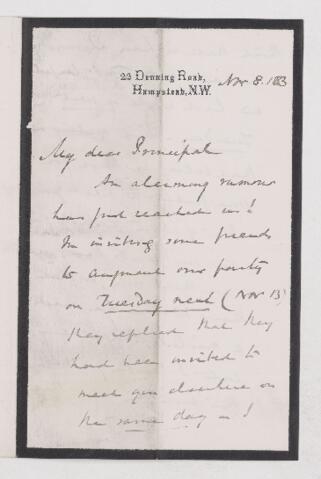 23 Denning Road,
Hampstead, N.W.
Nov 8. 1883
My dear Principal
An alarming rumour
has just reached us!
In inviting some friends
to augment our party
on Tuesday next (Nov 13)
they replied that they
had been invited to
meet you elsewhere on
the same day